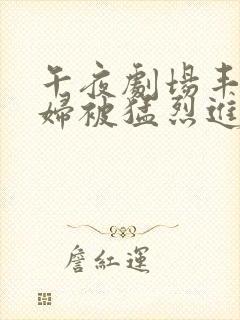 午夜劇場丰
婦被猛烈進
詹紅運